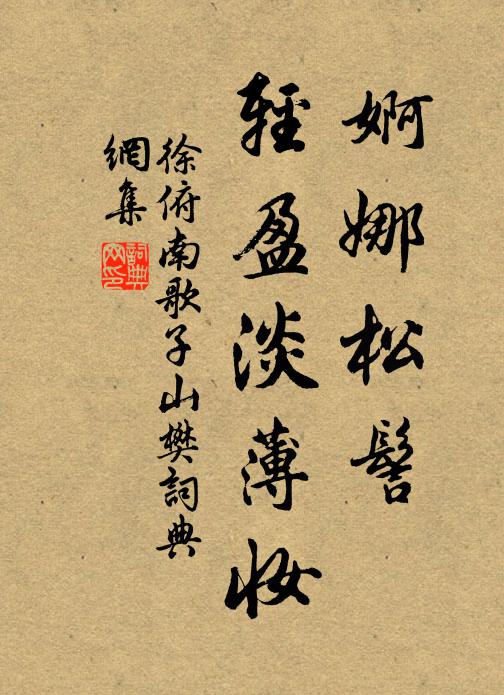 婀娜松髻
輕盈淡薄妝
徐俯南歌子山樊詞典
網集
詞典
网印